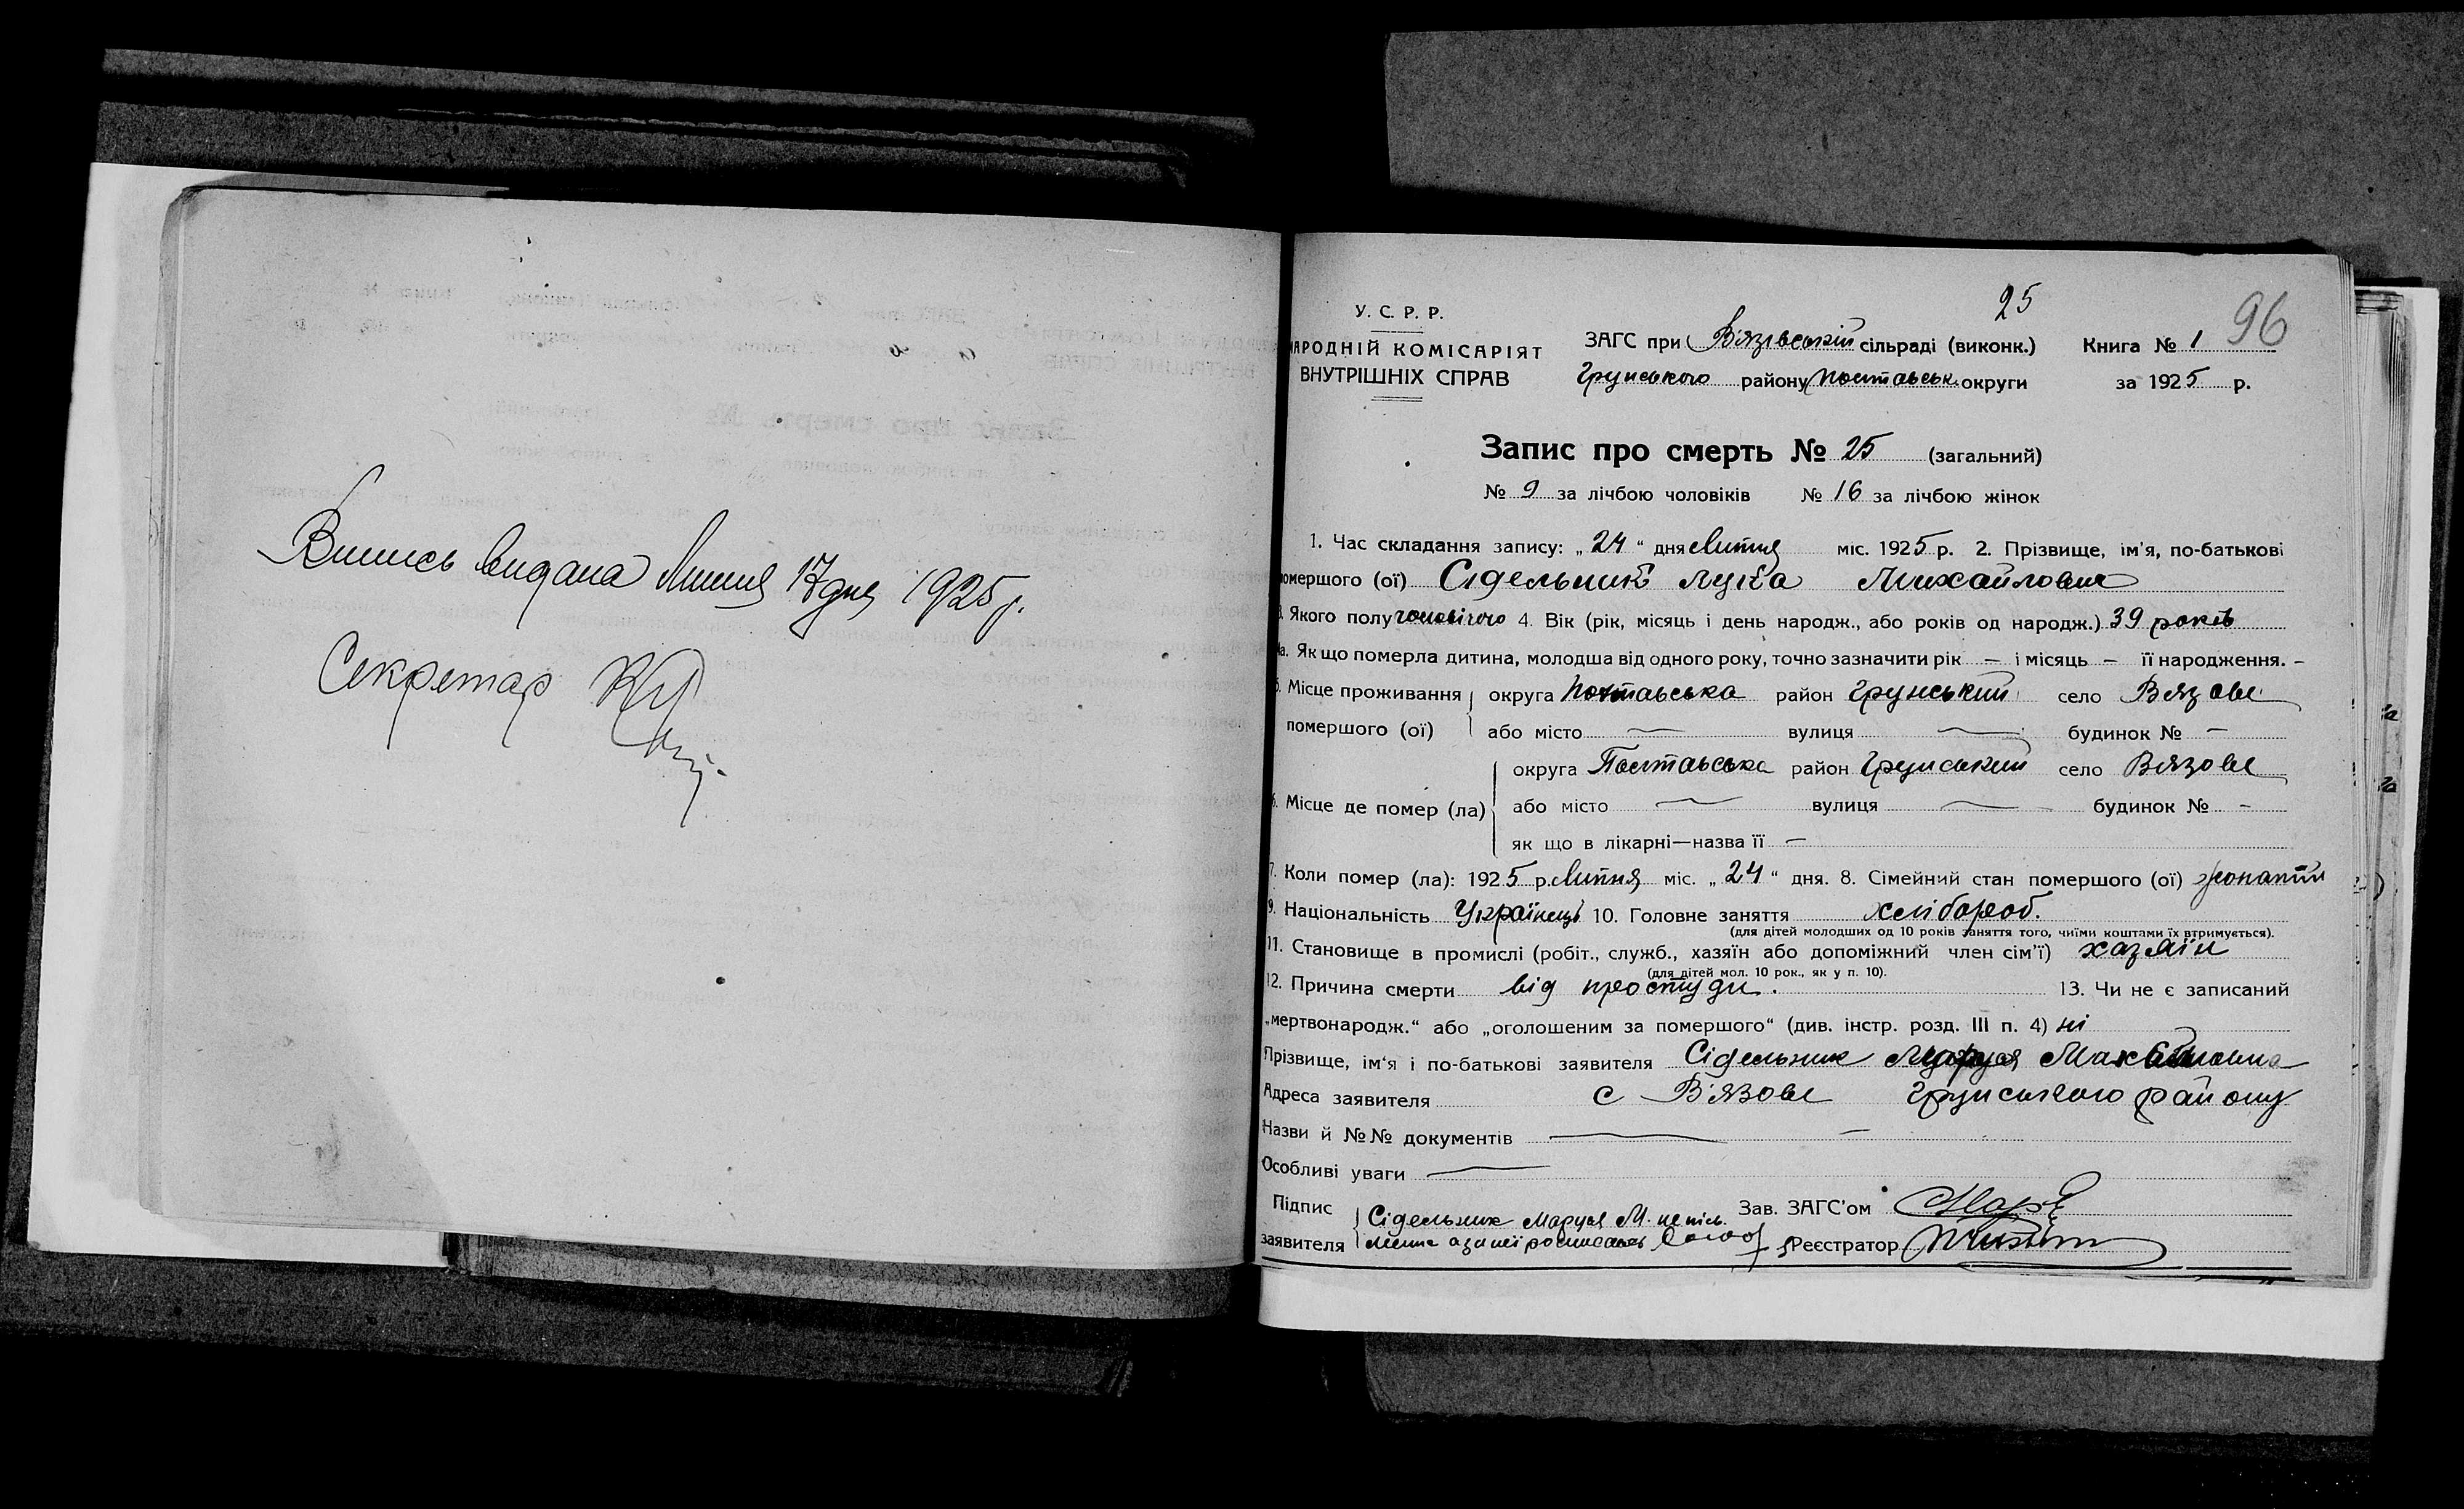 Выпись видана Липня 17 дня 1925 р.
Секретар
25
96
У. С. Р. Р.
НАРОДНІЙ КОМІСАРІЯТ
ВНУТРІШНІХ СПРАВ
ЗАГС при Вязівській сільраді (виконк.) Книга № 1
Грунського району Полтавськ. округи за 1925 р.
Запис про смерть № 25 (загальний)
№ 9 за лічбою чоловіків № 16 за лічбою жінок
1. Час складання запису: „24“ дня Липня міс. 1925 р. 2. Прізвище, ім'я, по-батькові
помершого (ої) Сідельник Лука Михайлович
3. Якого полу чоловічого 4. Вік (рік, місяць і день народж., або років од народж.) 39 років
4а. Як що померла дитина, молодша від одного року, точно зазначити рік – і місяць – її народження. –
5. Місце проживання округа Полтавська район Грунський село Вязове
помершого (ої) або місто — вулиця — будинок № –
округа Полтавська район Грунський село Вязове
6. Місце де помер (ла) або місто — вулиця — будинок № –
як що в лікарні—назва її –
7. Коли помер (ла): 1925 р. Липня міс. „24“ дня. 8. Сімейний стан помершого (ої) жонатий
9. Національність Українець 10. Головне заняття хлібороб.
(для дітей молодших од 10 років заняття того, чиїми коштами їх втримується).
11. Становище в промислі (робіт., служб., хазяїн або допоміжний член сім'ї) хазяїн
(для дітей мол. 10 рок., як у п. 10).
12. Причина смерти від простуди. 13. Чи не є записаний
„мертвонародж.“ або „оголошеним за помершого“ (див. інстр. розд. III п. 4) ні
Прізвище, ім'я і по-батькові заявителя Сідельник Маруся
Адреса заявителя с Вязове Грунського району
Назви й №№ документів — —
Особливі уваги —
Підпис Сідельник Маруся М. Зав. ЗАГС'ом
заявителя Реєстратор